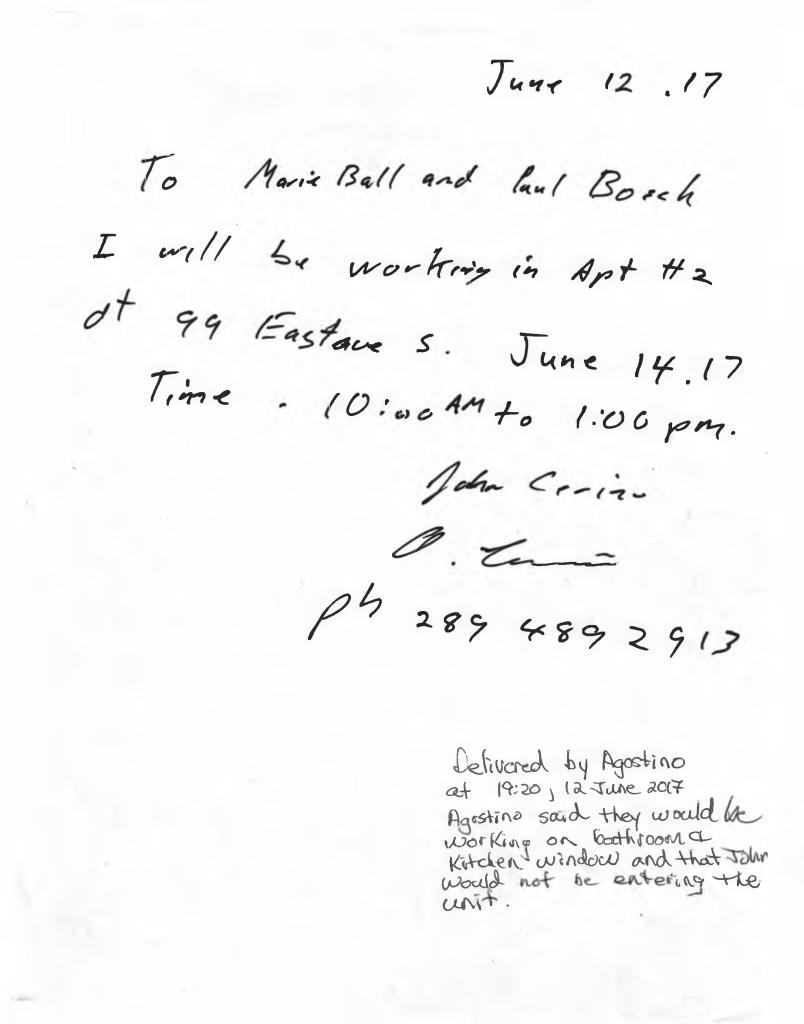 June 12 . 17
To Marie Ball and Paul Bosch
I will be working in Apt #2
at 99 East ave S. June 14.17
Time . 10:00 AM to 1:00 pm.
John
ph 289 489 2913
Delivered by Agostino
at 19:20, 12 June 2017
Agostino said they would be
working on bathroom &
Kitchen window and that John
would not be entering the
unit.